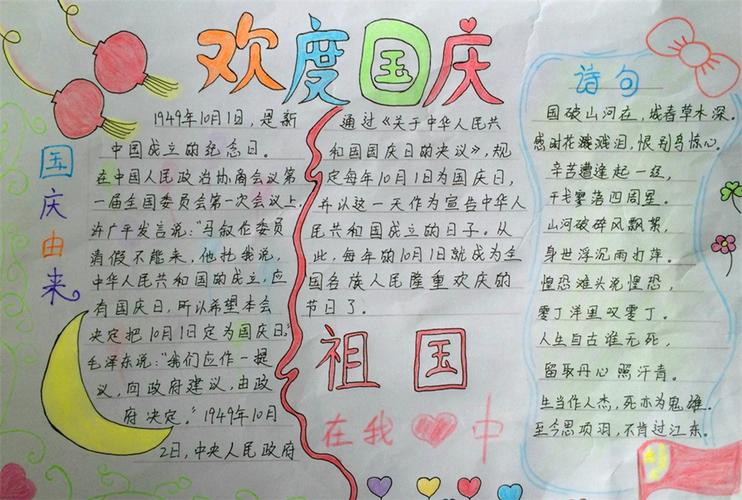 欢度国庆
国庆由来
1949年10月1日，是新
中国成立的纪念日。
在中国人民政治协商会议第
一届全国委员会第一次会议上，
许广平发言说："马叙伦委员
请假不能来，他托我说，
中华人民共和国的成立，应
有国庆日，所以希望本会
决定把10月1日定为国庆日。"
毛泽东说："我们应作一提
议，向政府建议，由政
府决定。"1949年10月
2日，中央人民政府
通过《关于中华人民共
和国国庆日的决议》，规
定每年10月1日为国庆日，
并以这一天作为宣告中华人
民共和国成立的日子。从
此，每年的10月1日就成为全
国各族人民隆重欢庆的
节日了。
祖国
在我中
诗句
国破山河在，城春草木深。
感时花溅泪，恨别鸟惊心。
辛苦遭逢起一经，
干戈寥落四周星。
山河破碎风飘絮，
身世浮沉雨打萍。
惶恐滩头说惶恐，
零丁洋里叹零丁。
人生自古谁无死，
留取丹心照汗青。
生当作人杰，死亦为鬼雄。
至今思项羽，不肯过江东。